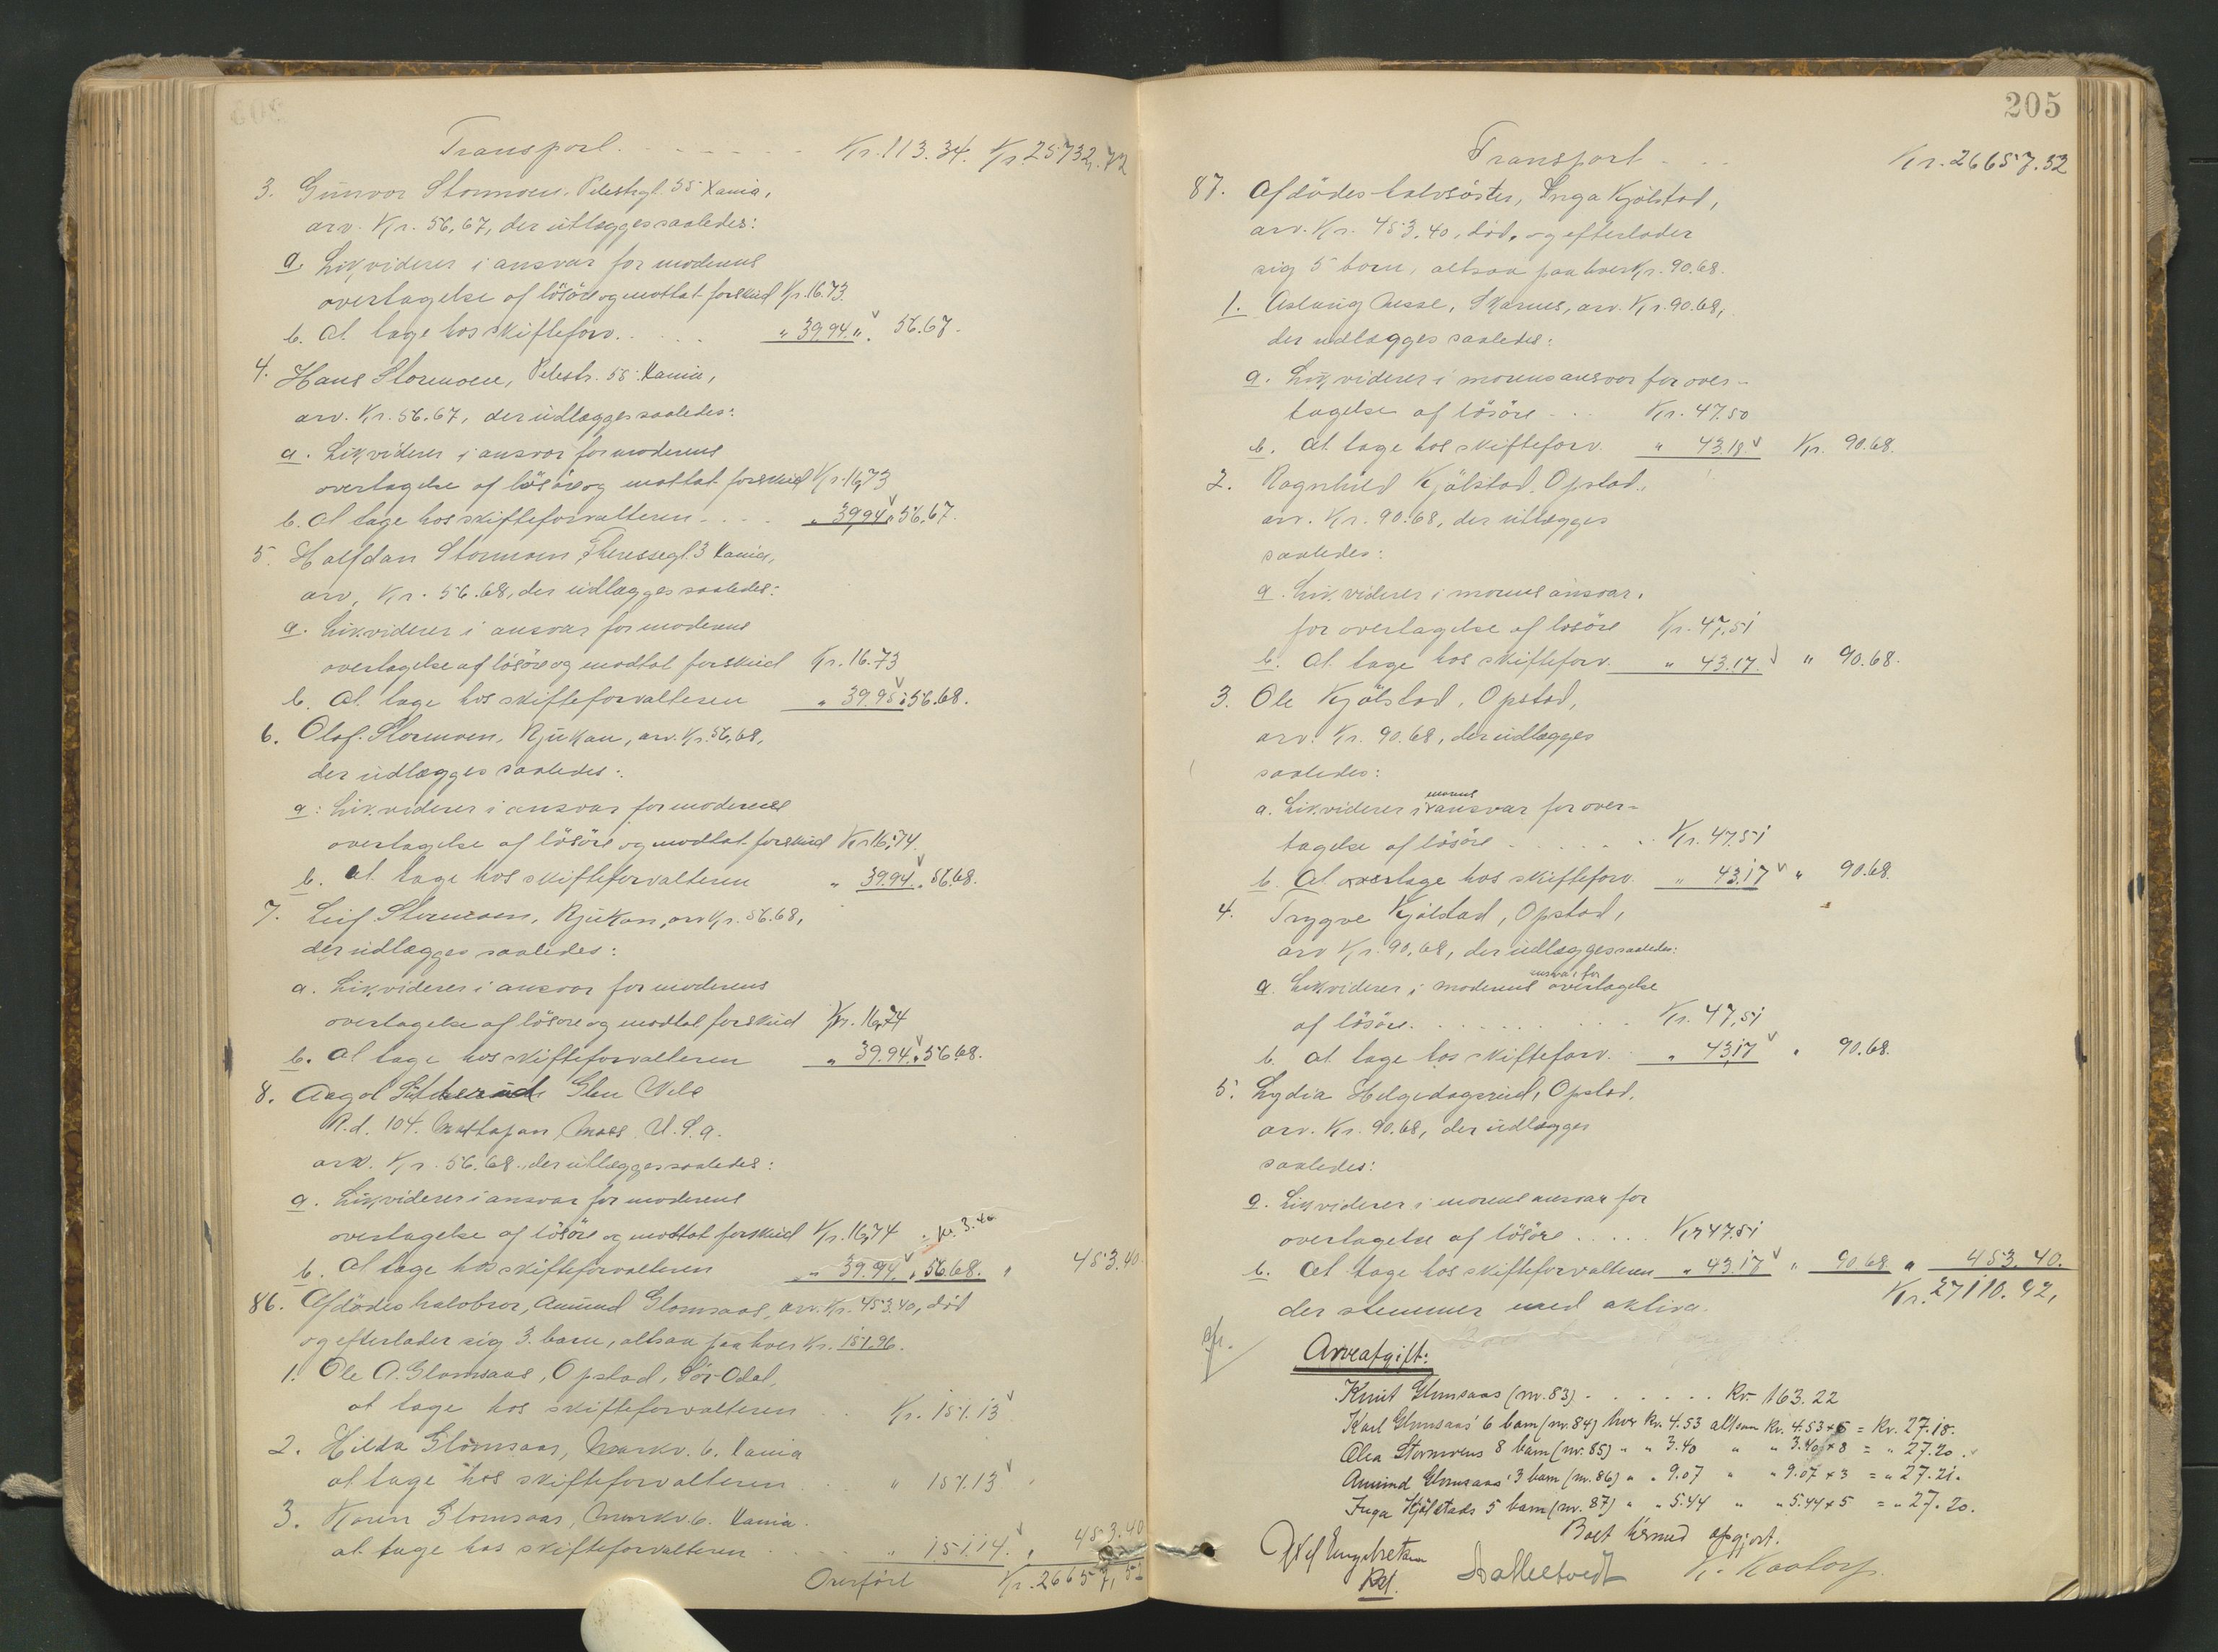 Transport . . . . . . . Kr. 113.34. Kr. 25732,72
3. Gunvor Stormoen, Pilestrgt. 55 Kania,
arv. Kr. 56,67, der utlægges saaledes:
a. Likviderer i ansvar for moderens
overtagelse af lösöre og mottat forskud Kr. 16.73.
b. At tage hos skifteforv. . . . . " 39.94. " 56.67.
4. Hans Stormoen, Pilestr. 55. Kania,
arv. Kr. 56.67, der udlægges saaledes:
a. Likviderer i ansvar for moderens
overtagelse af lösöre og mottat forskud Kr. 16,73
b. At tage hos skifteforvalteren . . . . " 39,94 " 56.67.
5. Halfdan Stormoen, Theressegt. 3 Kania,
arv, Kr. 56.68, der udlægges saaledes:
a. Likviderer i ansvar for moderens
overtagelse af lösöre og modtat forskud Kr. 16.73
b. At tage hos skifteforvalteren " 39.95 " 56.68.
6. Olaf Stormoen, Rjukan, arv. Kr. 56,68,
der udlægges saaledes:
a: Likviderer i ansvar for moderens
overtagelse af lösöre og modtat forskud Kr. 16,74.
b. At tage hos skifteforvalteren " 39.94. " 56.68.
7. Leif Stormoen, Rjukan, arv Kr. 56.68,
der udlægges saaledes:
a. Likviderer i ansvar for moderens
overtagelse af lösöre og modtat forskud Kr. 16,74
b. At tage hos skifteforvalteren " 39.94. " 56.68.
8. Aagot Glen
R.d. 104. Mattapan, Mass. U.S.a.
arv. Kr. 56.68. der utlægges saaledes:
a. Likviderer i ansvar for moderens
overtagelse af lösöre og mottat forskud Kr. 16,74 kr. 3.40
b. At tage hos skifteforvalteren " 39.94. " 56.68. " 453.40
86. Afdödes halvbror, Amund Glomsaas, arv. Kr. 453.40, död
og efterlader sig 3 barn, altsaa paa hver Kr. 151.96.
1. Ole A. Glomsaas, Opstad, Sör-Odal,
at tage hos skifteforvalteren . . Kr. 151.13
2. Hilda Glomsaas, Markv. 6. Kania
at tage hos skifteforvalteren . . . " 151.13
3. Karen Glomsaas, Markv. 6. Kania.
at tage hos skifteforvalteren . . . . " 151.14. " 453.40
Overfört Kr. 26657,52
205
Transport . . . Kr. 26657.52
87. Afdödes halvsöster, Inga Kjölstad,
arv. Kr. 453.40, död, og efterlader
sig 5 barn, altsaa paa hver Kr. 90.68.
1. Aslaug Aasse, Skarnes, arv. Kr. 90.68,
der udlægges saaledes:
a. Likviderer i morens ansvar for over-
tagelse af lösöre . . . Kr. 47.50
b. At tage hos skifteforv. " 43.18 Kr. 90.68.
2. Ragnhild Kjölstad, Opstad,
arv. Kr. 90.68, der utlægges
saaledes:
a. Likviderer i morens ansvar.
for overtagelse af lösöre Kr. 47,51
b. At tage hos skifteforv. " 43.17. " 90.68.
3. Ole Kjölstad, Opstad,
arv. Kr. 90.68, der udlægges
saaledes:
a. Likviderer i morens ansvar for over-
tagelse af lösöre . . . . . . Kr. 47.51
b. At overtage hos skifteforv. " 43.17 " 90.68.
4. Trygve Kjölstad, Opstad,
arv Kr. 90,68, der udlægges saaledes:
a. Likviderer i moderens ansvar for overtagelse
af lösöre . . . . . . . . . Kr. 47,51
b. at tage hos skifteforv. . " 43,17 " 90.68.
5. Lydia Helgedagsrud, Opstad,
arv. Kr. 90.68, der udlægges
saaledes:
a. Likviderer i morens ansvar for
overtagelse af lösöre . . . . . Kr 47.51
b. At tage hos skifteforvalteren " 43.17 " 90.68 " 453.40.
der stemmer med aktiva. Kr. 27110.92,
Arveafgift:
Knut Glomsaas (nr. 83) . . . . . . . Kr. 163.22
Karl Glomsaas' 6 barn (nr. 84) hver kr. 4.53 altsaa kr. 4.53 × 6 = kr. 27.18.
Olea Stormoens 8 barn (nr. 85) " " 3.40 " " 3.40 × 8 = " 27.20.
Amund Glomsaas' 3 barn (nr. 86) " " 9.07 " " 9.07 × 3 = " 27.21.
Inga Kjölstads 5 barn (nr. 87) " " 5.44 " " 5.44 × 5 = " 27.20.
Boet hermed opgjort.
Engebretsen